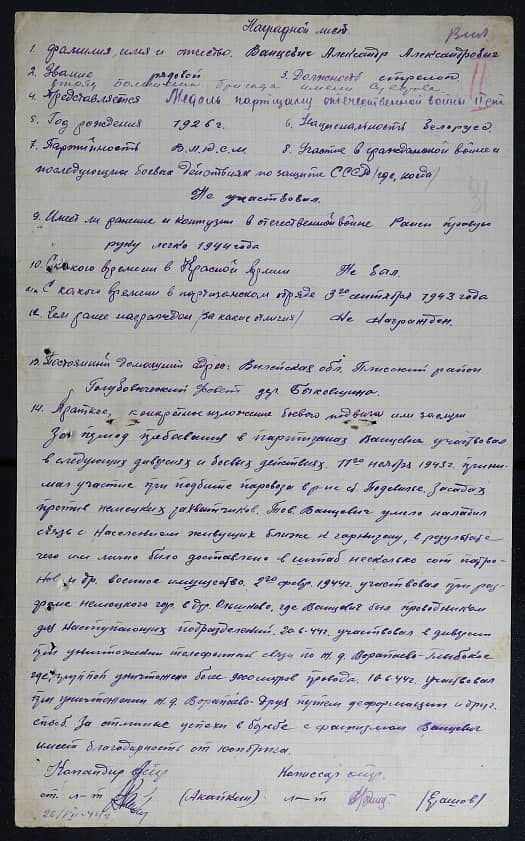 Наградной лист.
1. Фамилия, имя и отчество. Ванцевич Александр Александрович
2. Звание рядовой 3. Должность стрелок
отряд Большевик бригада имени Суворова.
4. Представляется Медаль партизану отечественной войны II степ
5. Год рождения 1926 г. 6. Национальность Белорусс
7. Партийность В.Л.К.С.М 8. Участие в гражданской войне и
последующих боевых действиях по защите СССР /где, когда/
Не участвовал.
9. Имеет ли ранение и контузии в отечественной войне Ранен правую
руку легко 1944 года
10. С какого времени в Красной Армии Не был.
11. С какого времени в партизанском отряде 3го сентября 1943 года
12. Чем ранее награжден /за какие отличия/ Не Награжден.
13. Постоянный домашний адрес: Вилейская обл. Плисский район
Голубовический Совет дер. Быковщина.
14. Краткое, конкретное изложение боевого подвига или заслуги
За период пребывания в партизанах Ванцевич участвовал
в следующих диверсиях и боевых действиях. 11го ноября 1943 г. прини-
мал участие при подбитии паровоза в р-не ст. Подсвилье. Засадах
против немецких захватчиков. Тов. Ванцевич умело наладил
связь с населением живущих ближе к гарнизону, в результате
чего им лично было доставлено в штаб несколько сот патро-
нов и др. военное имущество. 2го февр. 1944 г. участвовал при раз-
громе немецкого гар. в дер. где Ванцевич был проводником
для наступающих подразделений. 20.6.44 г. участвовал в диверсии
при уничтожении телефонной связи по ж.д. Воропаево-Глубокое
где группой уничтожено более километров провода. 10.6.44 г. Участвовал
при уничтожении ж.д. Воропаево-Друя путем деформации и друг.
способ. За отличные успехи в борьбе с фашизмом Ванцевич
имеет благодарность от комбрига.
Командир отр. Комиссар отр.
ст. л-т (Акайкин) л-т (Ершов)
26/VII-44 г.